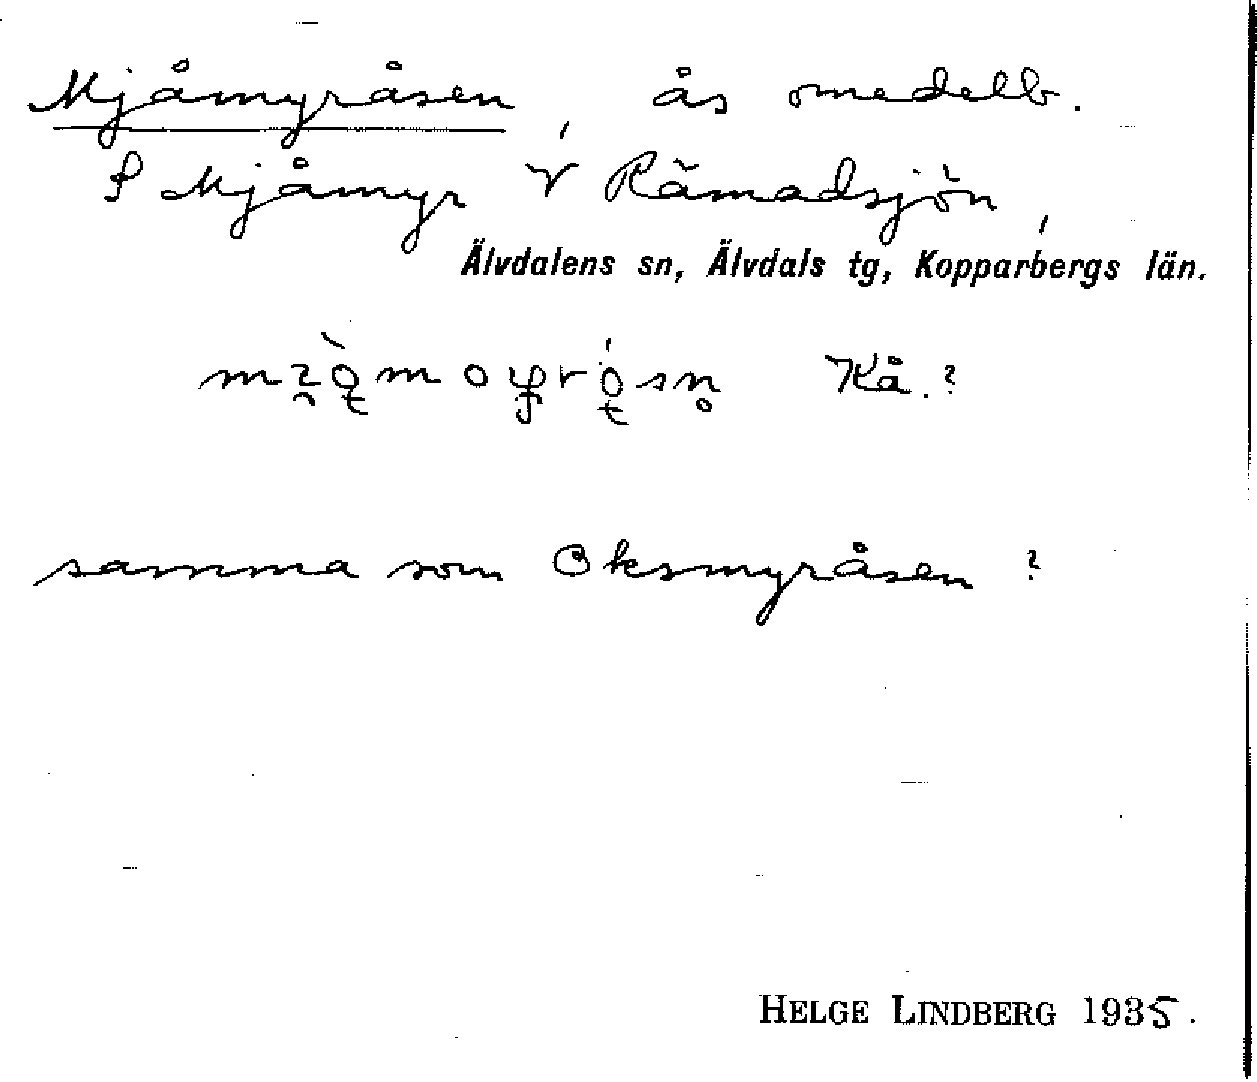 Mjåmyråsen, ås omedelb.
S Mjåmyr V Rämadsjön,
Älvdalens sn, Älvdals tg, Kopparbergs län.
Kå.?
samma som Oksmyråsen ?
HELGE LINDBERG 1935.